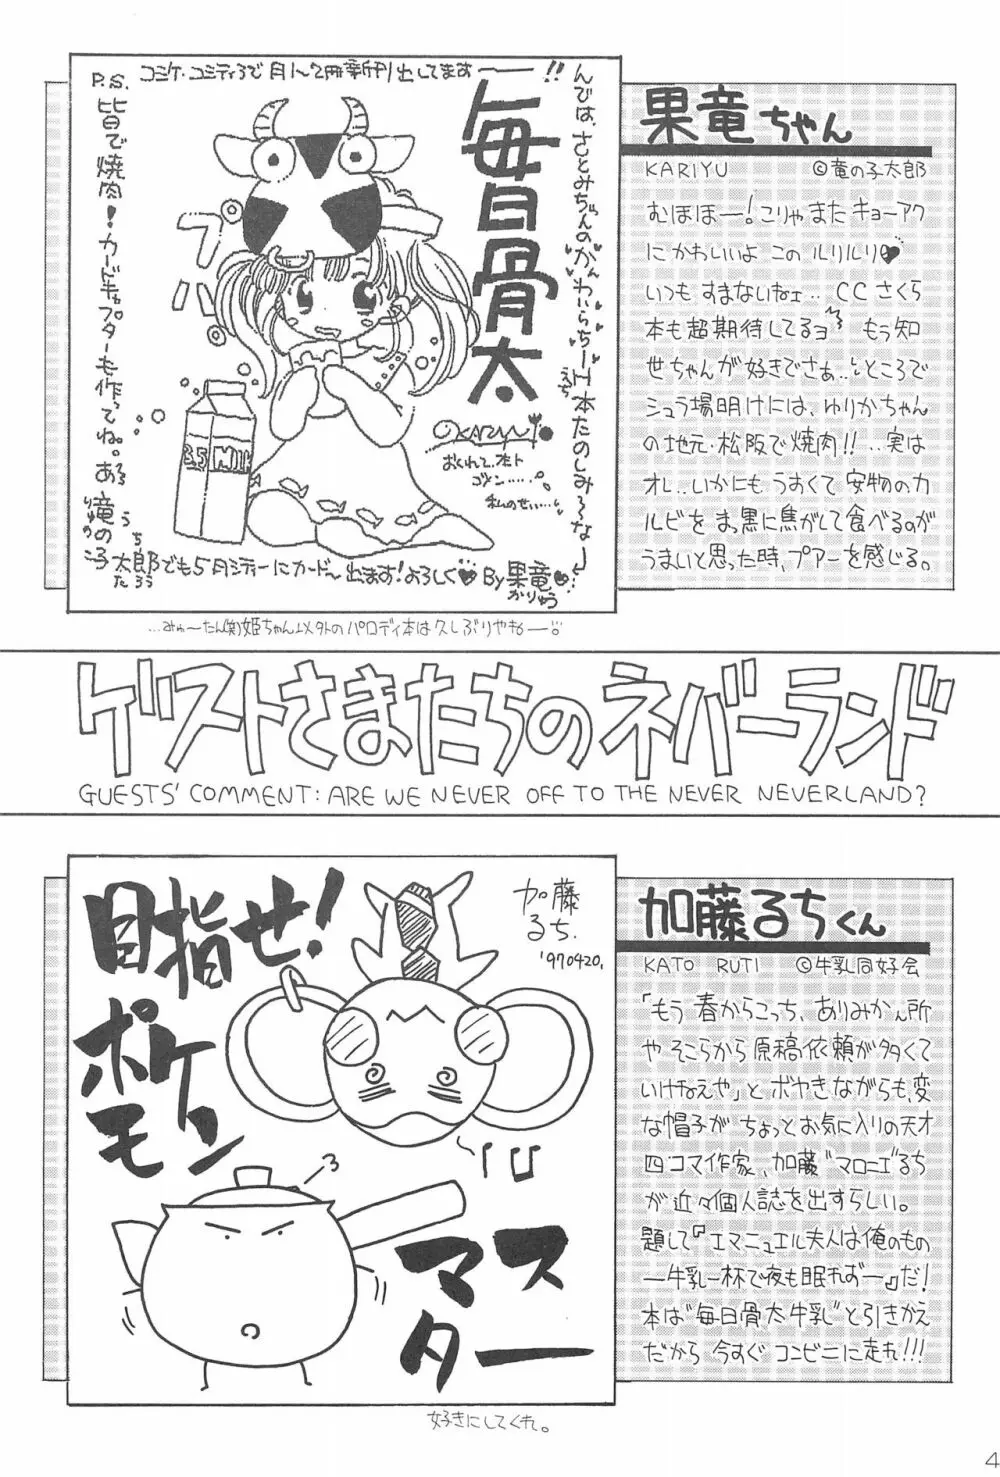 コミケ・コミティアで月1〜2冊新刊出してます——!!
毎日骨太
んでは、さとみちゃんのかわいらちーH本たのしみ〜な——
えち
P.S.
皆で焼肉！カードキャプターも作ってね。
プハ
3.5 MILK
KARIYU
おくれて、ホント
ゴメン……
私のせい……
竜の子太郎でも5月シティーにカード〜出ます！よろしく♥By果竜♥
りゅう
こ
たろう
かりゅう
…みゅ〜たん(笑)姫ちゃん以外のパロディ本は久しぶりやねー。
果竜ちゃん
KARIYU ©竜の子太郎
むほほー！こりゃまたキョーアク
にかわいいよ このルリルリ♥
いつもすまないねェ‥ CCさくら
本も超期待してるヨ もう知
世ちゃんが好きでさぁ…ところで
シュラ場明けには、ゆりかちゃん
の地元・松阪で焼肉!! ‥実は
オレ‥いかにもうすくて安物のカ
ルビをまっ黒に焦がして食べるのが
うまいと思った時、プアーを感じる。
ゲストさまたちのネバーランド
GUESTS' COMMENT: ARE WE NEVER OFF TO THE NEVER NEVERLAND?
目指せ！
ポケモン
マスター
加藤
るち.
'970420.
好きにしてくれ。
加藤るちくん
KATO RUTI ©牛乳同好会
「もう春からこっち、ありみかん所
やそこらから原稿依頼が多くて
いけねえや」とボヤきながらも変
な帽子がちょっとお気に入りの天才
四コマ作家、加藤"マロニエ"るち
が近々個人誌を出すらしい。
題して『エマニュエル夫人は俺のもの
—牛乳一杯で夜も眠れず—』だ！
本は"毎日骨太牛乳"と引きかえ
だから今すぐコンビニに走れ!!!
4